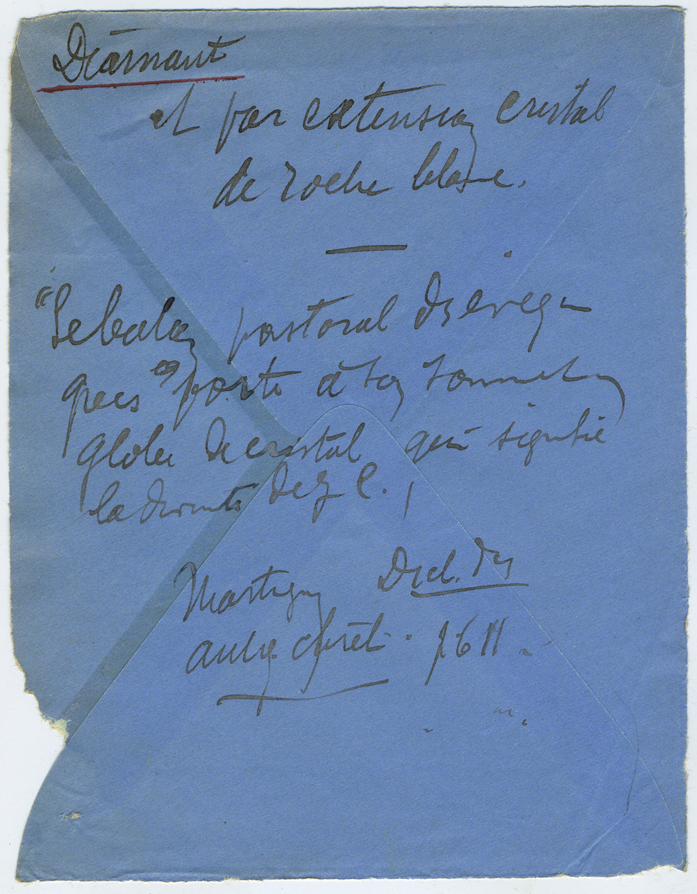 Diamant
et par extension cristal
de roche blanc.
"Le baton pastoral des évêques
grecs porte à son sommet un
globe de cristal qui signifie
la divinité de J C.
Martigny Dict. des
antiq chrét. p 611.